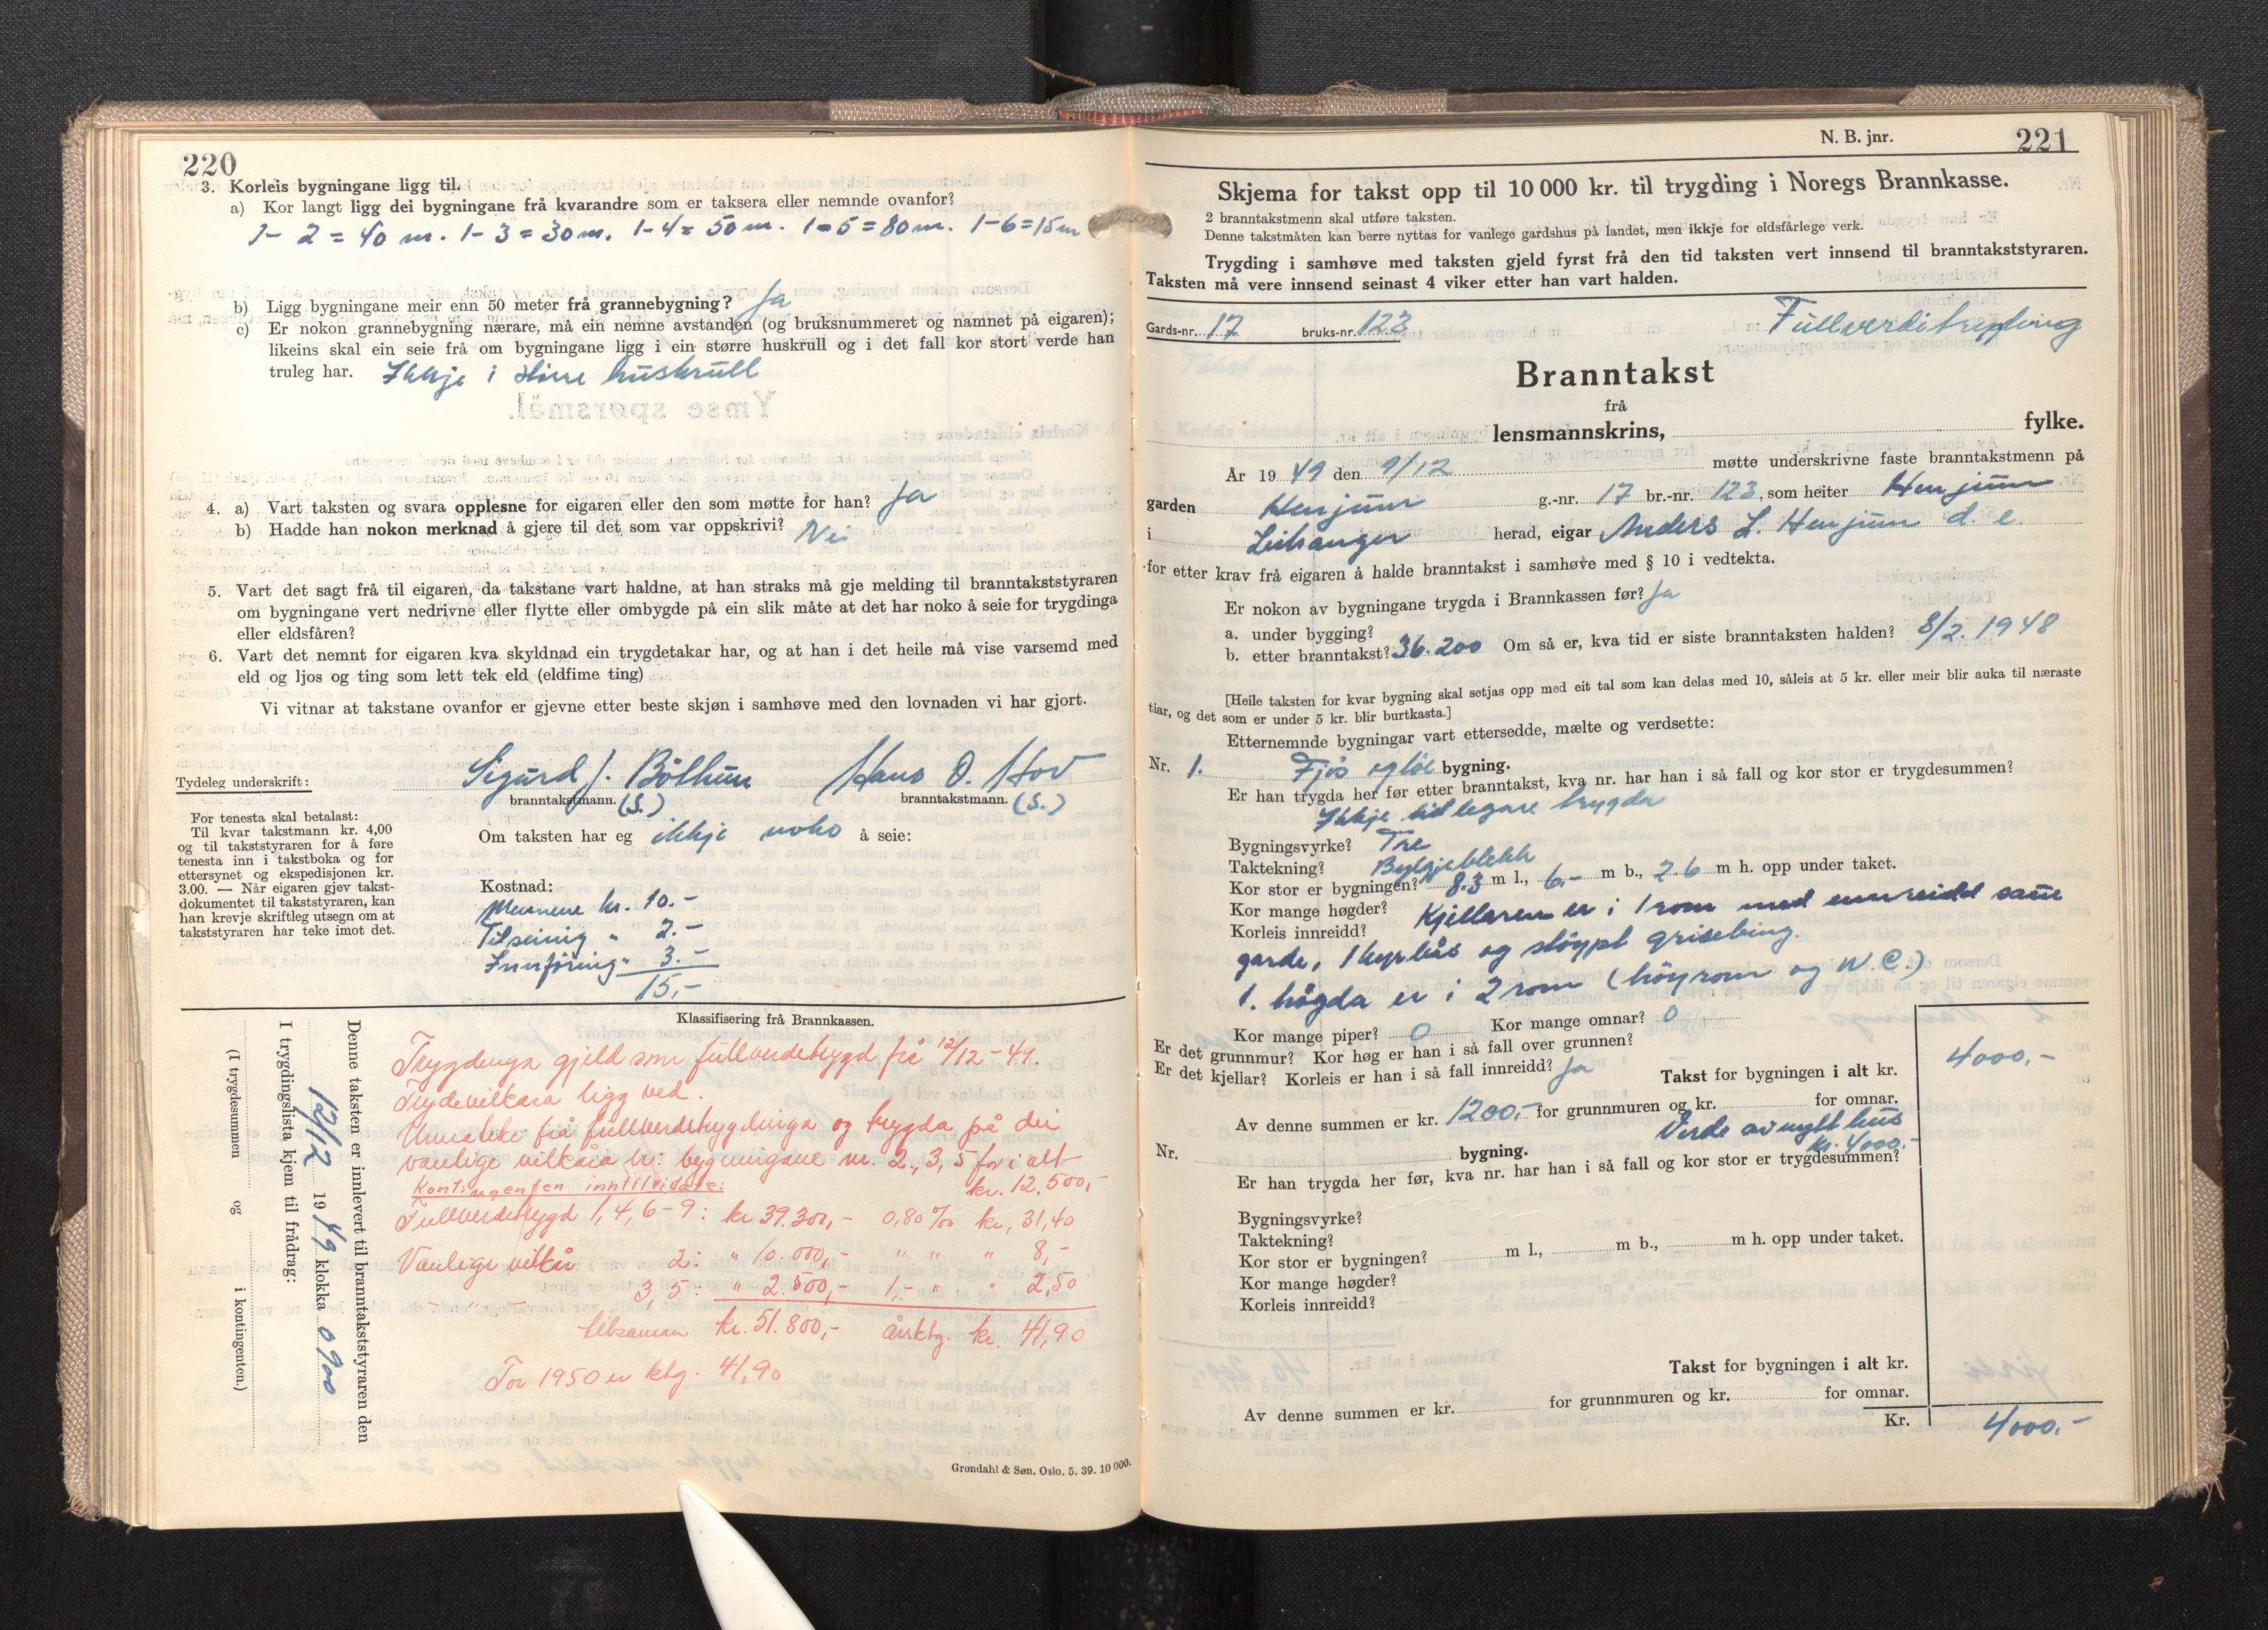 220
3. Korleis bygningane ligg til.
a) Kor langt ligg dei bygningane frå kvarandre som er taksera eller nemnde ovanfor?
1- 2 = 40 m. 1- 3 = 30 m. 1-4 = 50 m. 1-5 = 80 m. 1-6 = 15 m
b) Ligg bygningane meir enn 50 meter frå grannebygning? Ja
c) Er nokon grannebygning nærare, må ein nemne avstanden (og bruksnummeret og namnet på eigaren);
likeins skal ein seie frå om bygningane ligg i ein større huskrull og i det fall kor stort verde han
truleg har. Ikkje i større huskrull
4. a) Vart taksten og svara opplesne for eigaren eller den som møtte for han? Ja
b) Hadde han nokon merknad å gjere til det som var oppskrivi? Nei
5. Vart det sagt frå til eigaren, da takstane vart haldne, at han straks må gje melding til branntakststyraren
om bygningane vert nedrivne eller flytte eller ombygde på ein slik måte at det har noko å seie for trygdinga
eller eldsfåren?
6. Vart det nemnt for eigaren kva skyldnad ein trygdetakar har, og at han i det heile må vise varsemd med
eld og ljos og ting som lett tek eld (eldfime ting)
Vi vitnar at takstane ovanfor er gjevne etter beste skjøn i samhøve med den lovnaden vi har gjort.
Tydeleg underskrift: Sigurd J. Bölhun Hans O. Hov
branntakstmann. (S.) branntakstmann. (S.)
For tenesta skal betalast:
Til kvar takstmann kr. 4,00
og til takststyraren for å føre
tenesta inn i takstboka og for
ettersynet og ekspedisjonen kr.
3.00. — Når eigaren gjev takst-
dokumentet til takststyraren, kan
han krevje skriftleg utsegn om at
takststyraren har teke imot det.
Om taksten har eg ikkje noko å seie:
Kostnad:
Mennene kr. 10.-
Tilseinig " 2.-
Innföring " 3.-
15,-
Klassifisering frå Brannkassen.
Denne taksten er innlevert til branntakststyraren den
12/12 1949 klokka 0900
I trygdingslista kjem til frådrag:
(I trygdesummen og i kontingenten.)
Trygdinga gjeld som fullverdetrygd frå 12/12-49.
Trydevilkåra ligg ved.
Unnateke frå fullverdetrygdinga og trygda på dei
vanlige vilkåra er: bygningane nr. 2, 3, 5 for i alt
kr. 12.500,-
Kontingenten inntilvidare:
Fullverdetrygd 1, 4, 6-9: kr 39.300,- 0,80 ‰ kr. 31,40
Vanlige vilkår 2: " 10.000,- " " " 8,-
- " - 3, 5: " 2.500,- 1,- " " 2,50
tilsaman kr. 51.800,- årsktg. kr. 41,90
For 1950 er ktg. 41,90
Grøndahl & Søn. Oslo. 5. 39. 10 000.
N. B. jnr. 221
Skjema for takst opp til 10 000 kr. til trygding i Noregs Brannkasse.
2 branntakstmenn skal utføre taksten.
Denne takstmåten kan berre nyttas for vanlege gardshus på landet, men ikkje for eldsfårlege verk.
Trygding i samhøve med taksten gjeld fyrst frå den tid taksten vert innsend til branntakststyraren.
Taksten må vere innsend seinast 4 viker etter han vart halden.
Gards-nr. 17 bruks-nr. 123 Fullverditrygding
Branntakst
frå
lensmannskrins, fylke.
År 1949 den 9/12 møtte underskrivne faste branntakstmenn på
garden Henjum g.-nr. 17 br.-nr. 123, som heiter Henjum
i Leikanger herad, eigar Anders L. Henjum d. e.
for etter krav frå eigaren å halde branntakst i samhøve med § 10 i vedtekta.
Er nokon av bygningane trygda i Brannkassen før? Ja
a. under bygging?
b. etter branntakst? 36.200 Om så er, kva tid er siste branntaksten halden? 8/2. 1948
[Heile taksten for kvar bygning skal setjas opp med eit tal som kan delas med 10, såleis at 5 kr. eller meir blir auka til næraste
tiar, og det som er under 5 kr. blir burtkasta.]
Etternemnde bygningar vart ettersedde, mælte og verdsette:
Nr. 1. Fjös og löe bygning.
Er han trygda her før etter branntakst, kva nr. har han i så fall og kor stor er trygdesummen?
Ikkje tidlegare trygda
Bygningsvyrke? Tre
Taktekning? Bylgjeblekk
Kor stor er bygningen? 8.3 m l., 6.- m b., 2.6 m h. opp under taket.
Kor mange høgder? Kjellaren er i 1 rom med innreidd saue
Korleis innreidd?
garde, 1 kyrbås og stöypt grisebing.
1. högda er i 2 rom (höyrom og W.C.)
Kor mange piper? 0 Kor mange omnar? 0
Er det grunnmur? Kor høg er han i så fall over grunnen?
Er det kjellar? Korleis er han i så fall innreidd? Ja
Takst for bygningen i alt kr. 4000,-
Av denne summen er kr. 1200,- for grunnmuren og kr. for omnar.
Verde av nytt hus
kr. 4000.-
Nr. bygning.
Er han trygda her før, kva nr. har han i så fall og kor stor er trygdesummen?
Bygningsvyrke?
Taktekning?
Kor stor er bygningen? m l., m b., m h. opp under taket.
Kor mange høgder?
Korleis innreidd?
Takst for bygningen i alt kr.
Av denne summen er kr. for grunnmuren og kr. for omnar.
Kr. 4000.-